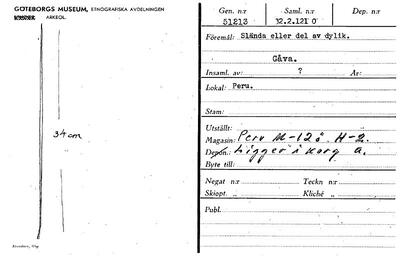 GÖTEBORGS MUSEUM, ETNOGRAFISKA AVDELNINGEN
ARKEOL.
34 cm
Gen. n:r Saml. n:r Dep. n:r
51213 32.2.121 O
Föremål: Slända eller del av dylik.
Gåva.
Insaml. av: ? År:
Lokal: Peru.
Stam:
Utställt:
Magasin: Peru M-12ö H-2.
Depon.: Ligger i korg a.
Byte till:
Negat n:r Teckn n:r
Skiopt. „ Kliché „
Publ.